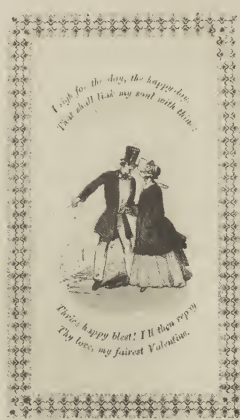 I sigh for the day, the happy day,
That shall link my soul with thine;
Thrice happy blest! I'll then repay
Thy love, my fairest Valentine.